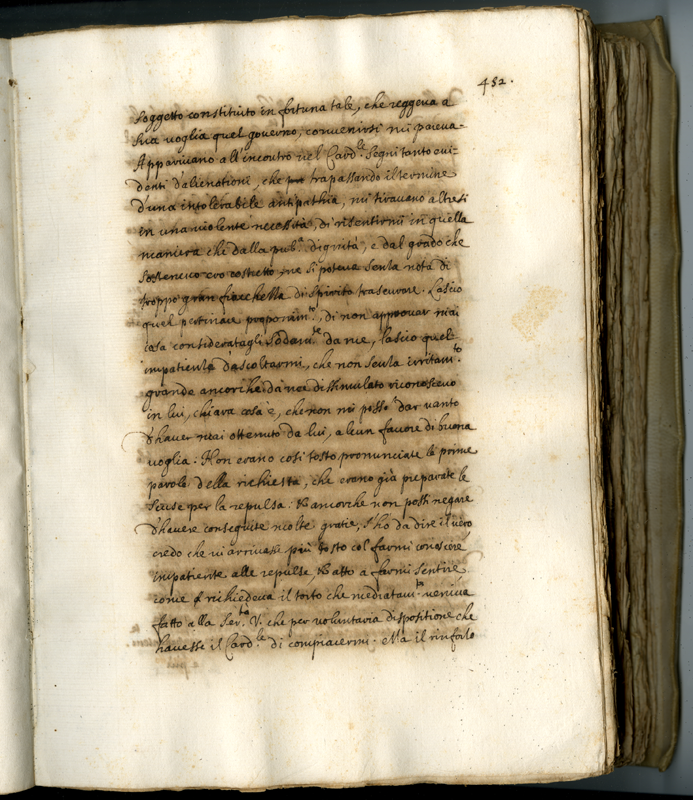 452.
soggetto constituito in fortuna tale, che reggeua a
sua uoglia quel gouerno; conuenirsi mi pareua.
Appariuano all'incontro nel Card.le segni tanto eui=
denti d'alienationi, che trapassando il termine
d'una intolerabile antipathia, mi tirauano altresi
in una uiolente necessità, di risentirmi in quella
maniera che dalla pub.ca dignità, e dal grado che
sosteneuo ero costretto, ne si poteua senza nota di
troppo gran fiacchezza di spirito trascurare. Lascio
quel pertinace proponim.to, di non approuar mai
cosa consideratagli da me, lascio quel
impatienza d'ascoltarmi, che non senza irritam.to
grande ancorche da me dissimulato riconosceuo
in lui, chiara cosa è, che non mi posso dar uanto
d'hauer mai ottenuto da lui, alcun fauore di buona
uoglia. Non erano cosi tosto pronunciate le prime
parole della richiesta, che erano già preparate le
scuse per la repulsa. Et ancorche non possi negare
d'hauere conseguite molte gratie, s'ho da dire il uero
credo che ui arriuassi più tosto col farmi conoscere
impatiente alle repulse, et atto a farmi sentire
come richiedeua il torto che mediatam.te ueniua
fatto alla Ser.tà V. che per uoluntaria dispositione che
hauesse il Card.le di compiacermi. Ma il rinforzo